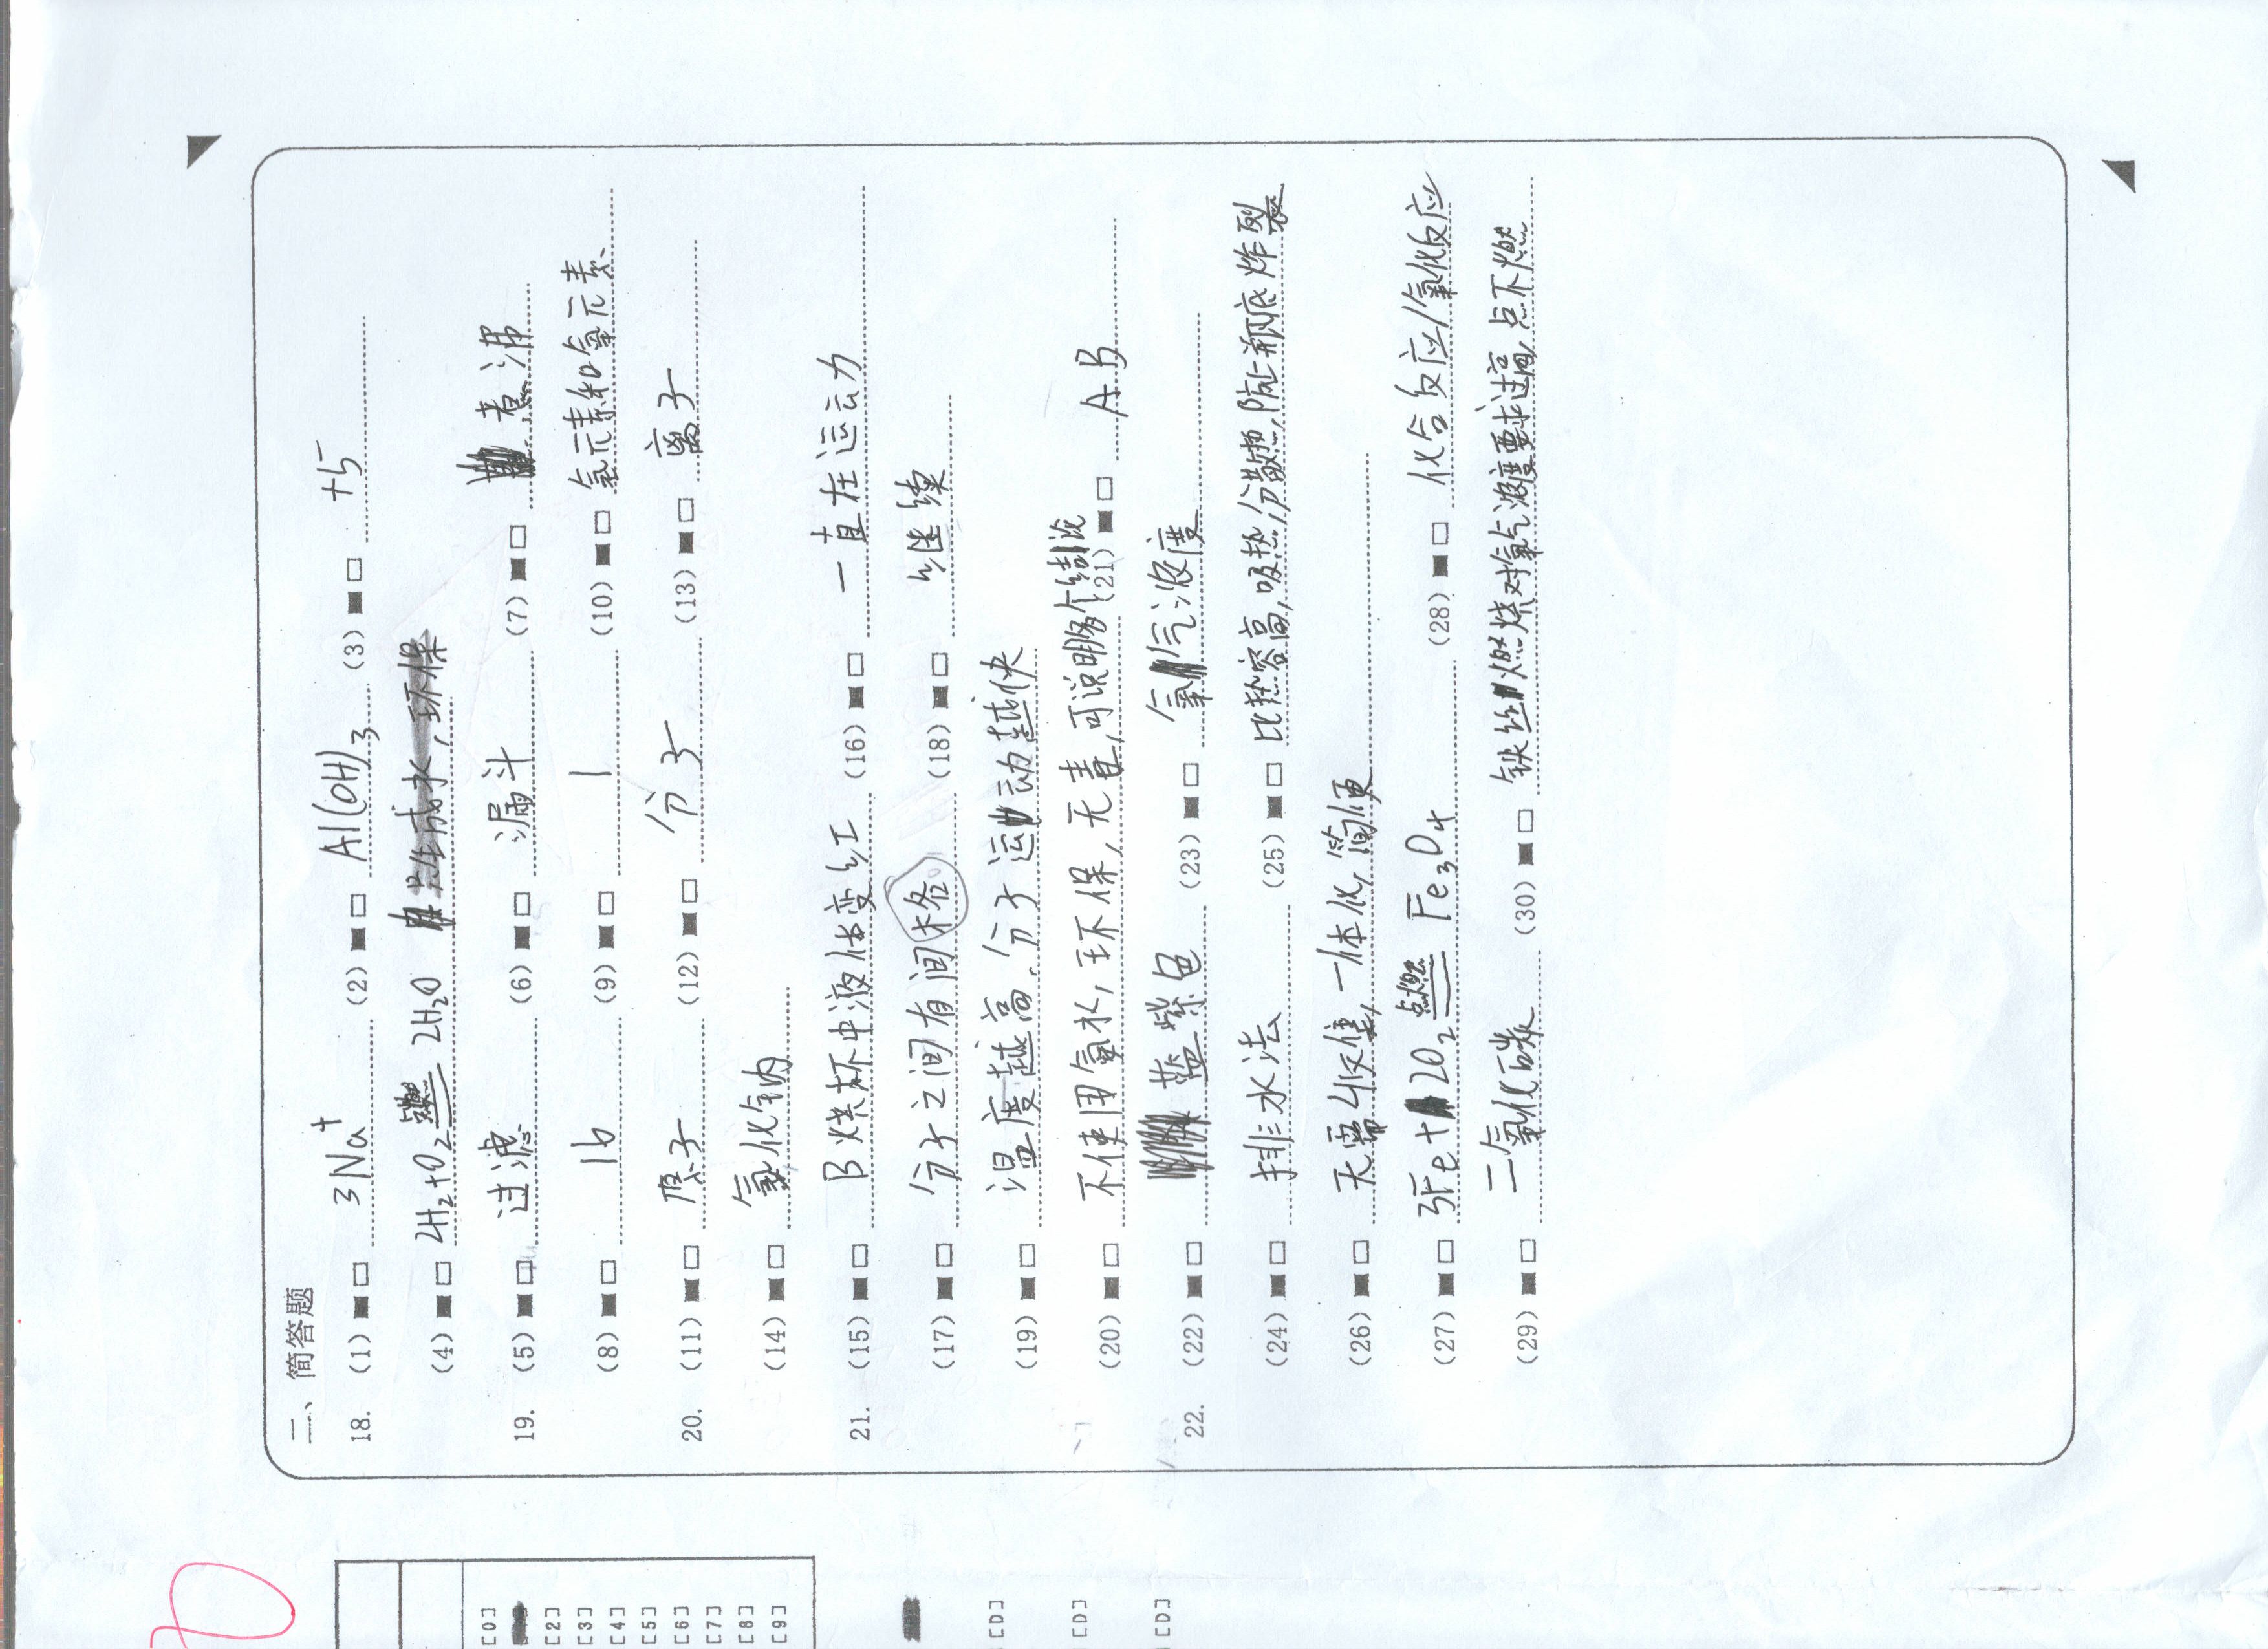 二、简答题
18. (1) ■ □ 3Na⁺ (2) ■ □ Al(OH)₃ (3) ■ □ +5
(4) ■ □ 2H₂+O₂ 点燃 2H₂O
19. (5) ■ □ 过滤 (6) ■ □ 漏斗 (7) ■ □ 煮沸
(8) ■ □ 16 (9) ■ □ 1 (10) ■ □ 氢元素和氧元素
20. (11) ■ □ 原子 (12) ■ □ 分子 (13) ■ □ 离子
(14) ■ □ 氯化钠
21. (15) ■ □ B烧杯中液体变红 (16) ■ □ 一直在运动
(17) ■ □ 分子之间有间格 (18) ■ □ 继续
(19) ■ □ 温度越高.分子运动越快
(20) ■ □ 不使用氨水,环保,无毒,可说明 个结论 (21) ■ □ AB
22. (22) ■ □ 蓝紫色 (23) ■ □ 氧气浓度
(24) ■ □ 排水法 (25) ■ □ 比热容高,吸热,分散热,防止瓶底炸裂
(26) ■ □ 无需收集,一体化,简便
(27) ■ □ 3Fe+2O₂ 点燃 Fe₃O₄ (28) ■ □ 化合反应/氧化反应
(29) ■ □ 二氧化碳 (30) ■ □ 铁丝燃烧对氧气浓度要求过高,点不燃
[0]
[2]
[3]
[4]
[5]
[6]
[7]
[8]
[9]
[D]
[D]
[D]